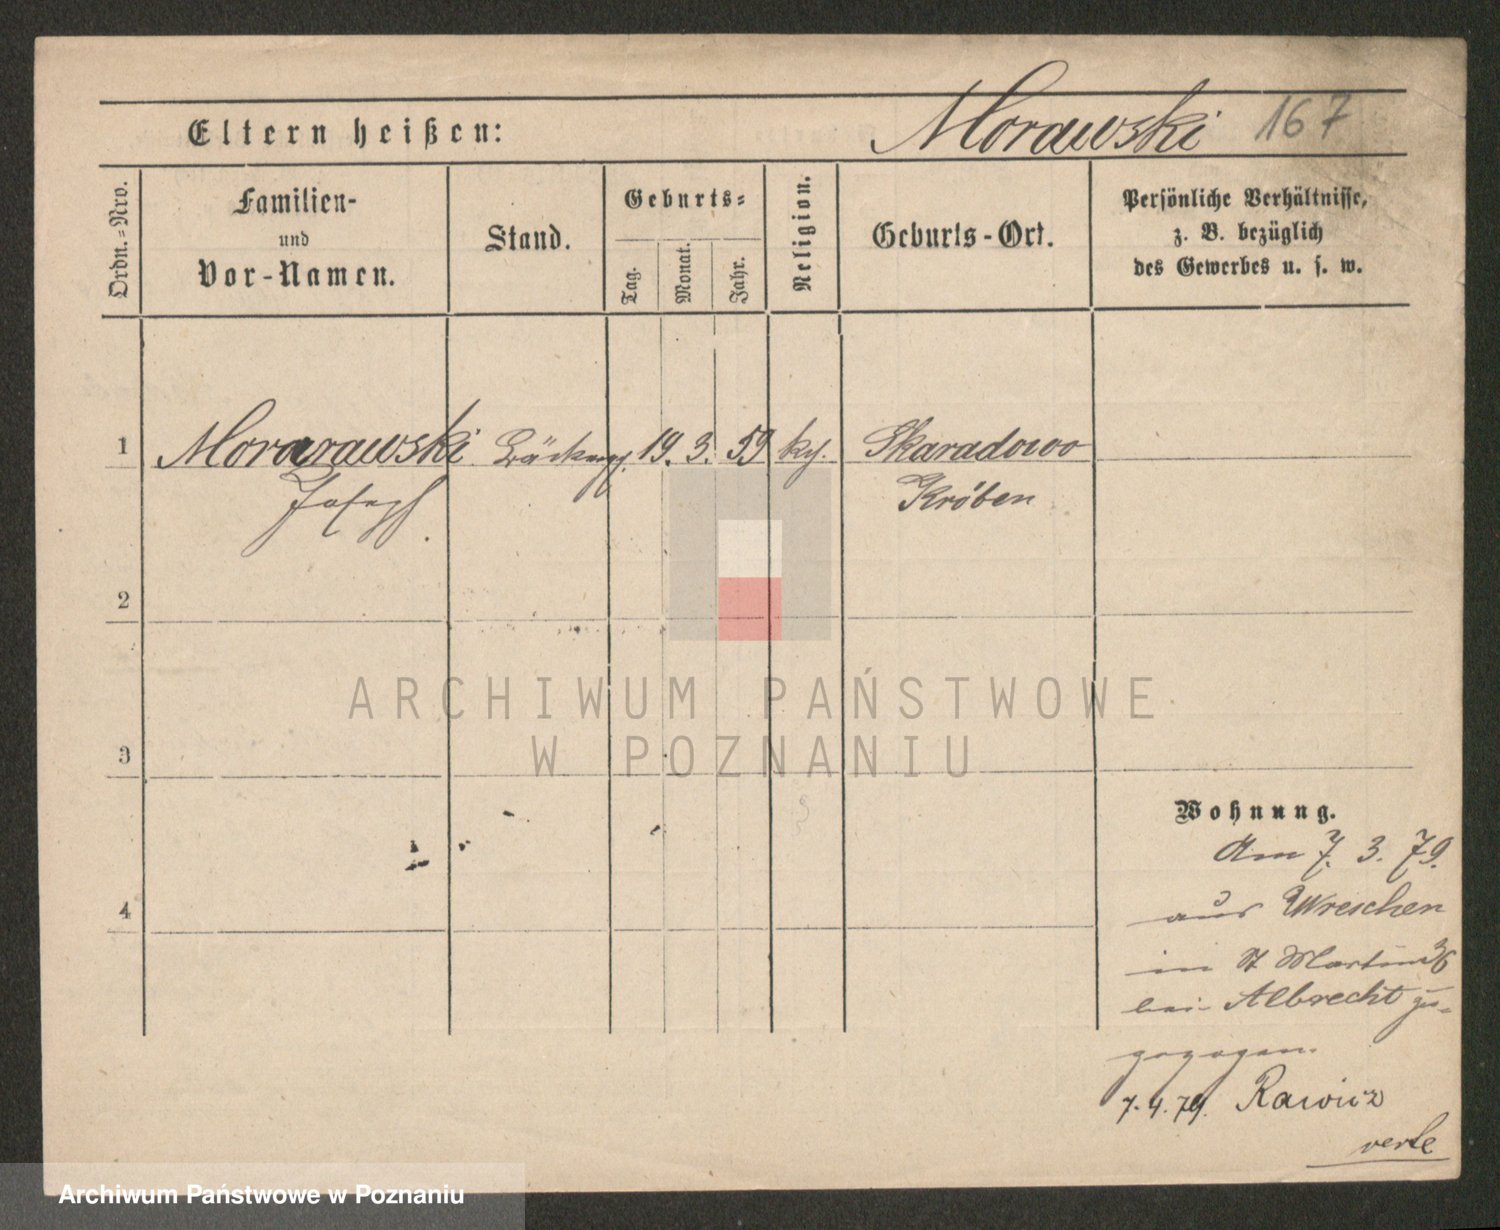 Eltern heißen:
Morawski 167
Ordn.=Nro.
Familien-
und
Vor-Namen.
Stand.
Geburts=
Tag.
Monat.
Jahr.
Religion.
Geburts-Ort.
Persönliche Verhältnisse,
z. B. bezüglich
des Gewerbes u. s. w.
1 Morawski Bäckerg. 19. 3. 59 kg. Skaradowo
Josef Kröben
2
3
4
Wohnung.
Am 7. 3. 79.
aus Wreschen
in St Martin 36
bei Albrecht zu-
gezogen.
7. 4. 79. Rawicz
verte
ARCHIWUM PAŃSTWOWE
W POZNANIU
Archiwum Państwowe w Poznaniu